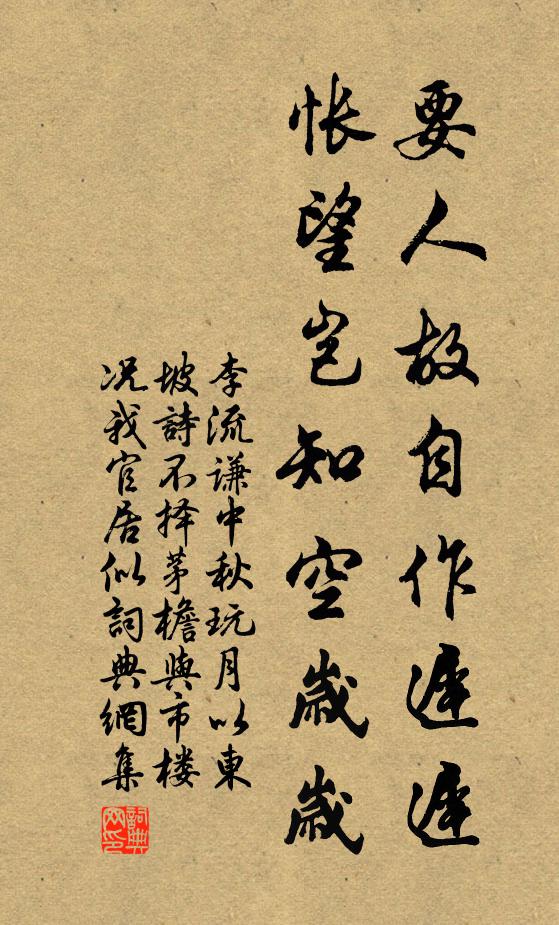 要人故自作遲遲
悵望豈知空歲歲
李流謙中秋玩月以東
坡詩不择茅檐與市楼
况我官居似詞典網集
詞典
网印